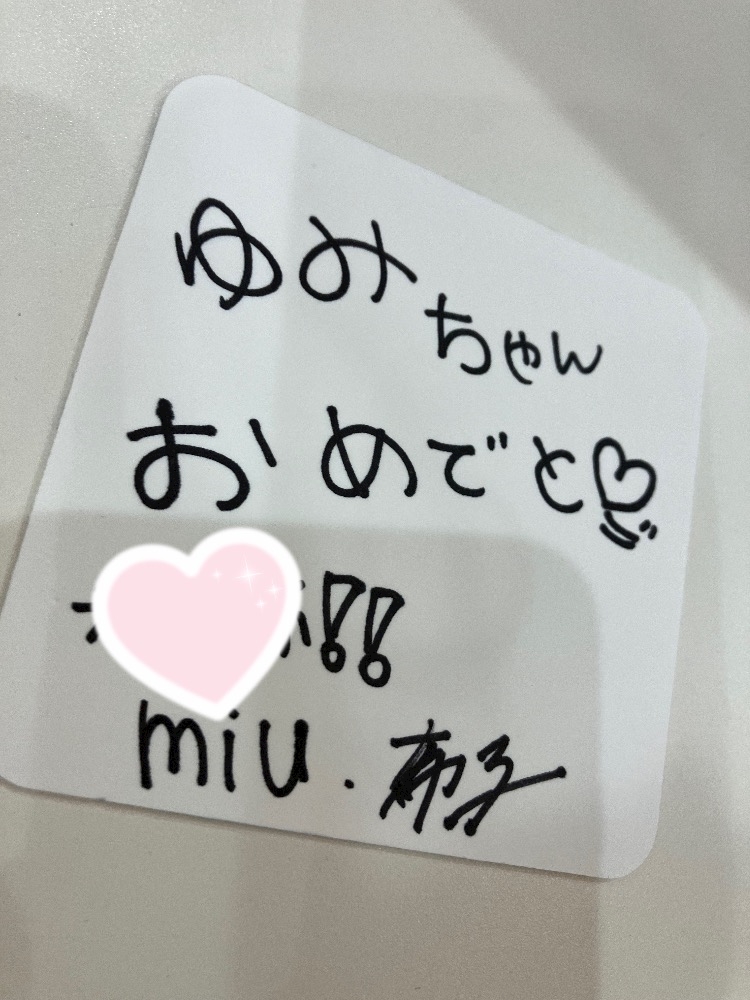 ゆみちゃん
おめでと♡
!!
miu.希子